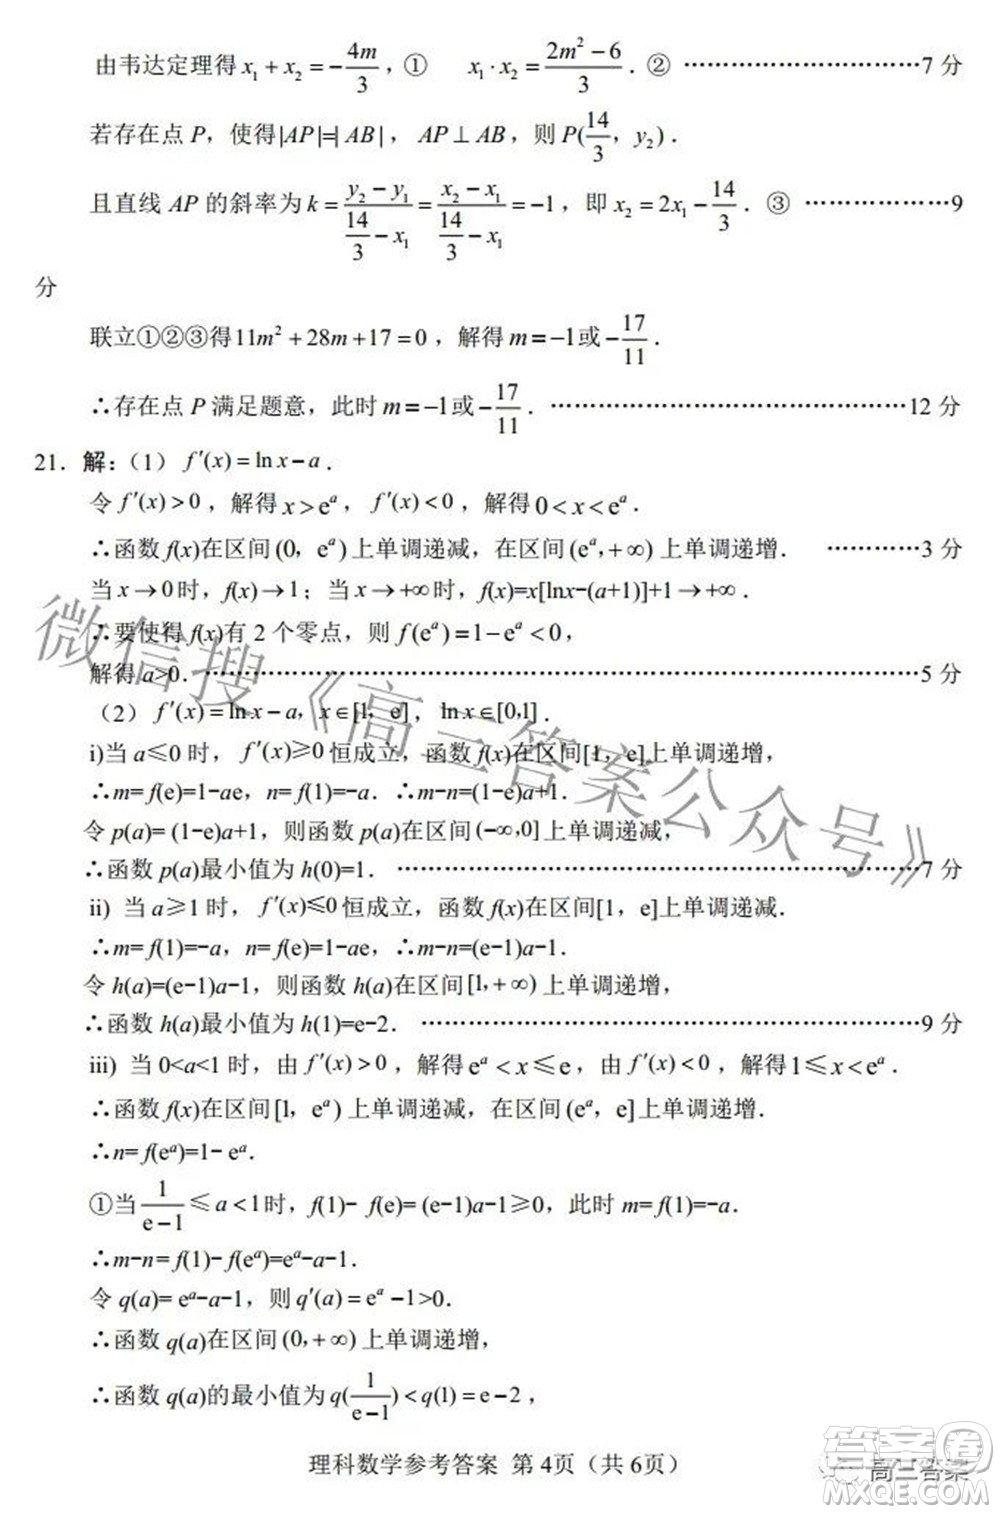 由韦达定理得 x₁ + x₂ = −4m/3，①  x₁·x₂ = (2m² − 6)/3．② ……………………7 分
若存在点 P，使得|AP|=|AB|，AP⊥AB，则 P(14/3，y₂)．
且直线 AP 的斜率为 k = (y₂ − y₁)/(14/3 − x₁) = (x₂ − x₁)/(14/3 − x₁) = −1，即 x₂ = 2x₁ − 14/3．③ ………………9
分
联立①②③得11m² + 28m + 17 = 0，解得 m = −1或−17/11．
∴存在点 P 满足题意，此时 m = −1或−17/11．……………………………………12 分
21．解：（1）f′(x) = ln x − a．
令 f′(x) > 0，解得 x > eᵃ，f′(x) < 0，解得 0 < x < eᵃ．
∴函数 f(x)在区间(0，eᵃ)上单调递减，在区间(eᵃ，+∞)上单调递增． …………3 分
当 x → 0时，f(x)→1；当 x → +∞时，f(x)=x[lnx−(a+1)]+1→+∞．
∴要使得 f(x)有 2 个零点，则 f(eᵃ) = 1 − eᵃ < 0，
解得 a>0．……………………………………………………………………5 分
（2）f′(x) = ln x − a，x∈[1，e]，ln x∈[0,1]．
i)当 a≤0 时，f′(x)≥0 恒成立，函数 f(x)在区间[1，e]上单调递增，
∴m= f(e)=1−ae，n= f(1)=−a．∴m−n=(1−e)a+1．
令 p(a)= (1−e)a+1，则函数 p(a)在区间(−∞,0]上单调递减，
∴函数 p(a)最小值为 h(0)=1．………………………………………………7 分
ii) 当 a≥1 时，f′(x)≤0 恒成立，函数 f(x)在区间[1，e]上单调递减．
∴m= f(1)=−a，n= f(e)=1−ae，∴m−n=(e−1)a−1．
令 h(a)=(e−1)a−1，则函数 h(a)在区间[1,+∞)上单调递增，
∴函数 h(a)最小值为 h(1)=e−2．……………………………………………9 分
iii) 当 0<a<1 时，由 f′(x) > 0，解得 eᵃ < x ≤ e，由 f′(x) < 0，解得1 ≤ x < eᵃ．
∴函数 f(x)在区间[1，eᵃ)上单调递减，在区间(eᵃ，e]上单调递增．
∴n= f(eᵃ)=1− eᵃ．
①当 1/(e − 1) ≤ a < 1时，f(1)− f(e)= (e−1)a−1≥0，此时 m= f(1)=−a．
∴m−n= f(1)− f(eᵃ)=eᵃ−a−1．
令 q(a)= eᵃ−a−1，则 q′(a) = eᵃ −1>0．
∴函数 q(a)在区间(0,+∞)上单调递增，
∴函数 q(a)的最小值为 q(1/(e−1)) < q(1) = e − 2，
理科数学参考答案 第 4页（共 6页）
微信搜《高三答案公众号》
高三答案
答案卷
MXQE.COM